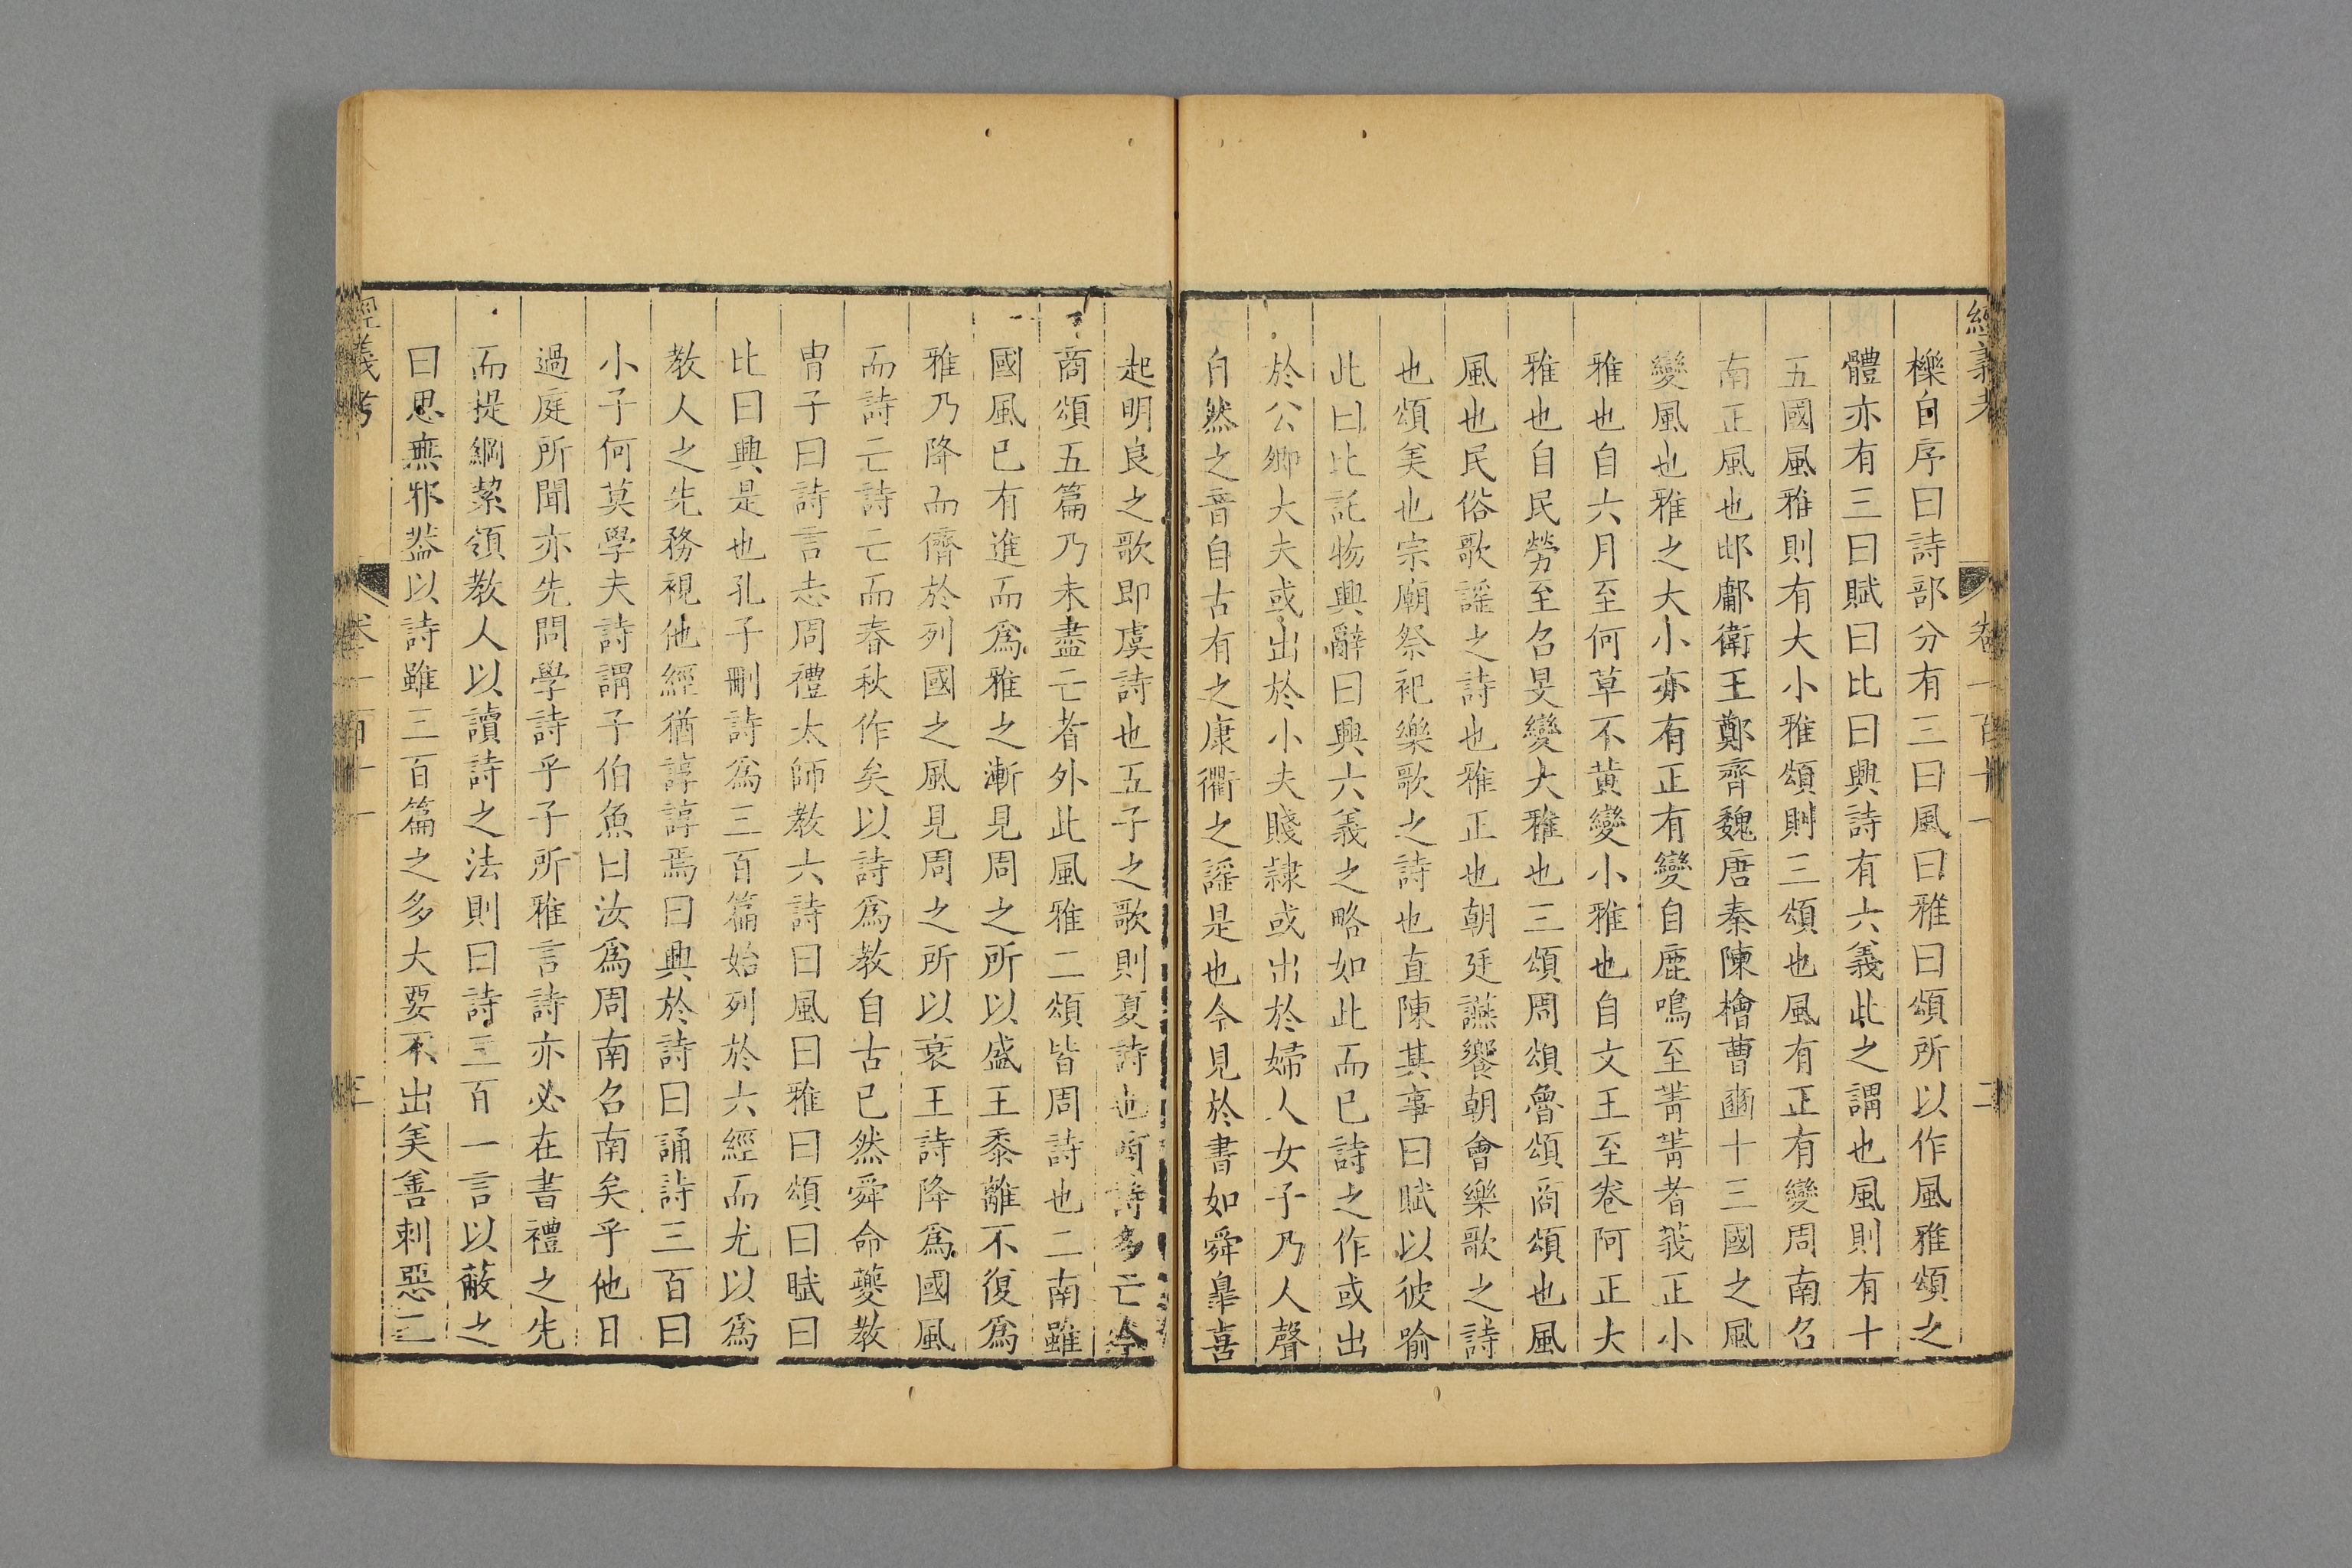 經義考 卷一百十一 二
櫟自序曰詩部分有三曰風曰雅曰頌所以作風雅頌之
體亦有三曰賦曰比曰興詩有六義此之謂也風則有十
五國風雅則有大小雅頌則三頌也風有正有變周南召
南正風也邶鄘衛王鄭齊魏唐秦陳檜曹豳十三國之風
變風也雅之大小亦有正有變自鹿鳴至菁菁者莪正小
雅也自六月至何草不黄變小雅也自文王至卷阿正大
雅也自民勞至召旻變大雅也三頌周頌魯頌商頌也風
風也民俗歌謡之詩也雅正也朝廷讌饗朝會樂歌之詩
也頌美也宗廟祭祀樂歌之詩也直陳其事曰賦以彼喻
此曰比託物興辭曰興六義之略如此而已詩之作或出
於公卿大夫或出於小夫賤隷或出於婦人女子乃人聲
自然之音自古有之康衢之謡是也今見於書如舜臯喜
起明良之歌即虞詩也五子之歌則夏詩也商詩多亡今
商頌五篇乃未盡亡者外此風雅二頌皆周詩也二南雖
國風已有進而爲雅之漸見周之所以盛王黍離不復爲
雅乃降而儕於列國之風見周之所以衰王詩降爲國風
而詩亡詩亡而春秋作矣以詩爲教自古已然舜命夔教
胄子曰詩言志周禮太師教六詩曰風曰雅曰頌曰賦曰
比曰興是也孔子刪詩爲三百篇始列於六經而尤以爲
教人之先務視他經猶諄諄焉曰興於詩曰誦詩三百曰
小子何莫學夫詩謂子伯魚曰汝爲周南召南矣乎他日
過庭所聞亦先問學詩乎子所雅言詩亦必在書禮之先
而提綱挈領教人以讀詩之法則曰詩三百一言以蔽之
曰思無邪葢以詩雖三百篇之多大要不出美善刺惡二
經義考 卷一百十一